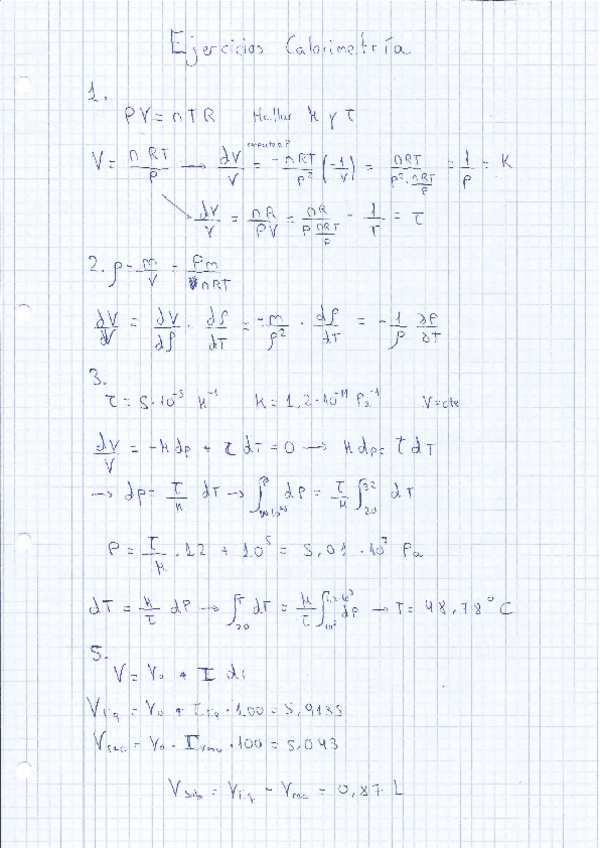 Ejercicios Calorimetría
1.
PV = nTR Hallar K y τ
V = nRT/P → dV/V = -nRT/P² (-1/V) = nRT/(P² · nRT/P) = 1/P = K
dV/V = nR/PV = nR/(P nRT/P) - 1/T = τ
2. ρ - m/V = Pm/nRT
dV/dV = dV/dρ · dρ/dT = -m/ρ² · dρ/dT = -1/ρ ∂ρ/∂T
3.
τ = 5·10⁻⁵ K⁻¹ K = 1,2·10⁻¹¹ Pa⁻¹ V = cte
dV/V = -K dp + τ dT = 0 → K dp = τ dT
→ dp = τ/K dT → ∫ dP = τ/K ∫₂₀³² dT
P = τ/K · 12 + 10⁵ = 5,01·10⁷ Pa
dT = K/τ dP → ∫₂₀ᵀ dT = K/τ ∫ dp → T = 48,78°C
5.
V = V₀ + I di
Vliq = V₀ + τliq · 100 = 5,9135
Vrec = V₀ · · 100 = 5,043
Vsob = Vliq - Vrec = 0,87 L